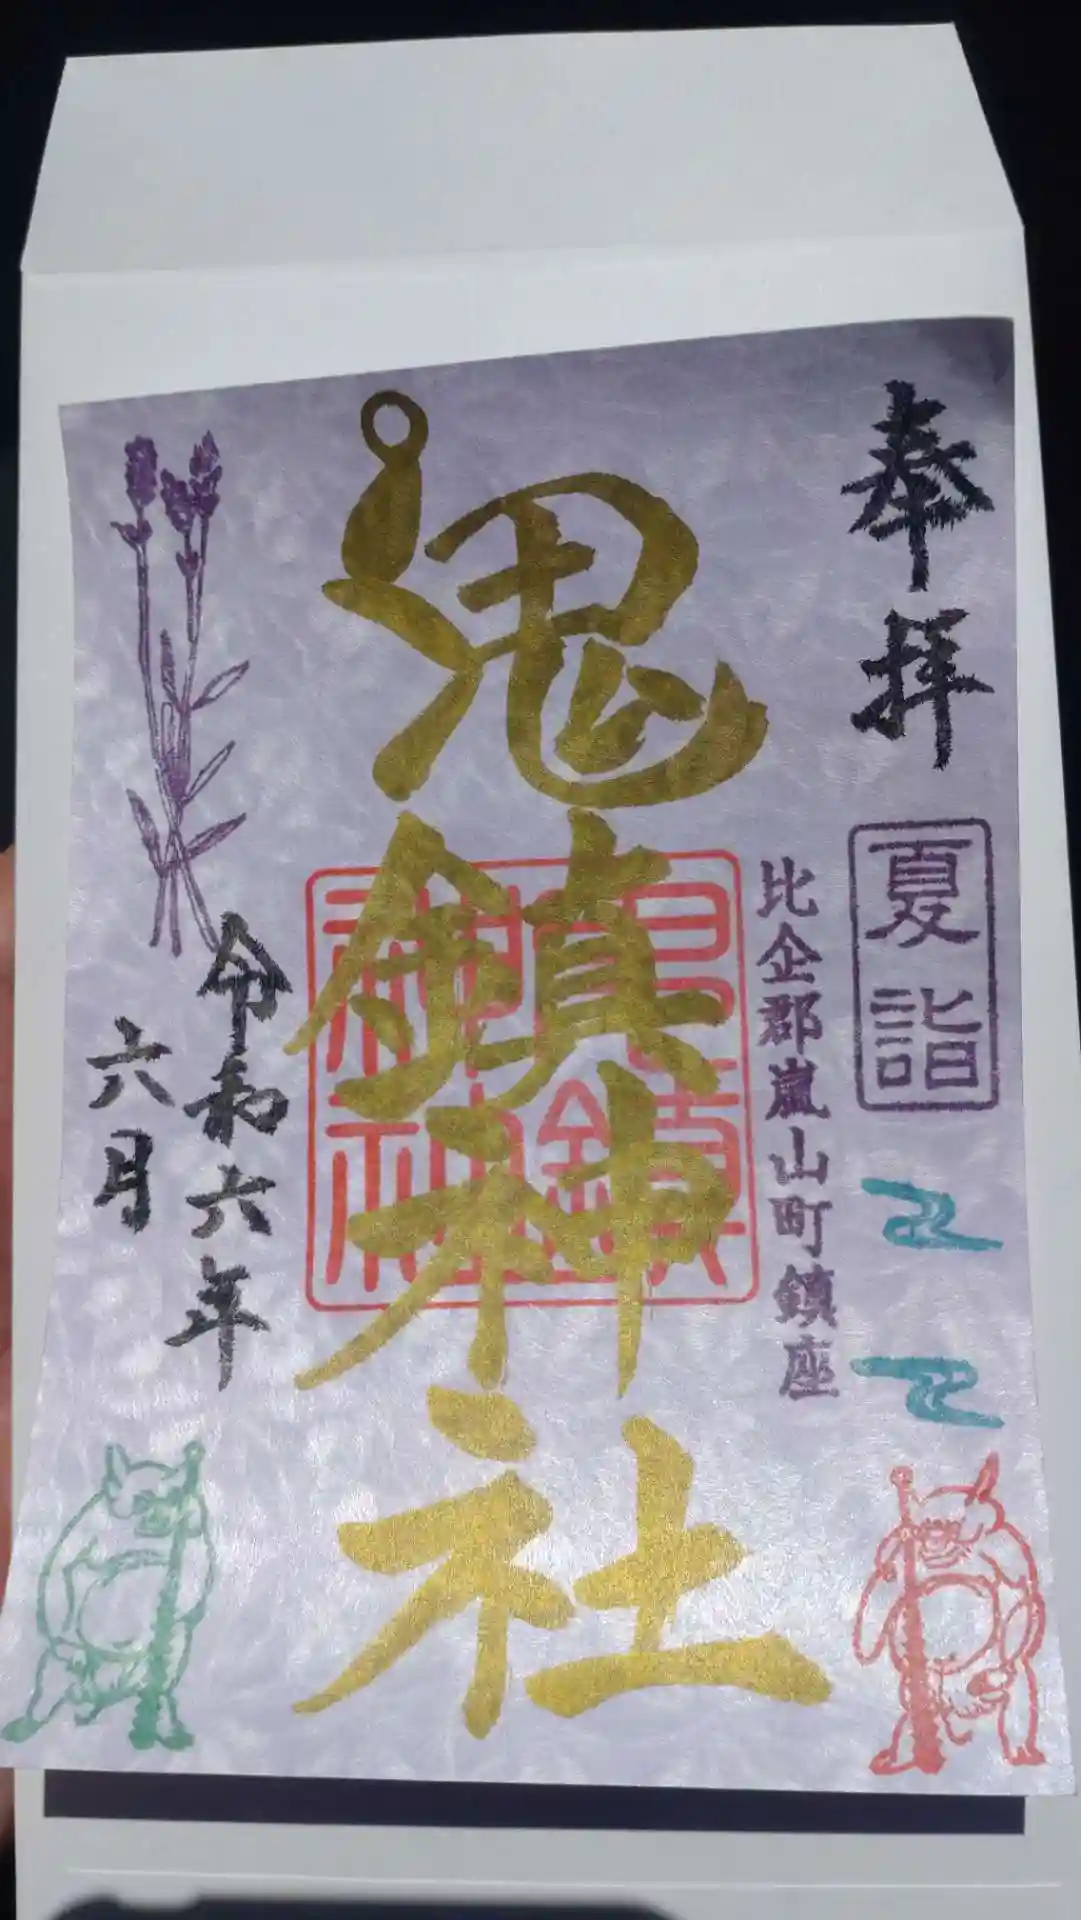 奉拝
夏詣
比企郡嵐山町鎮座
鬼鎮神社
鬼鎮
神社
令和六年
六月